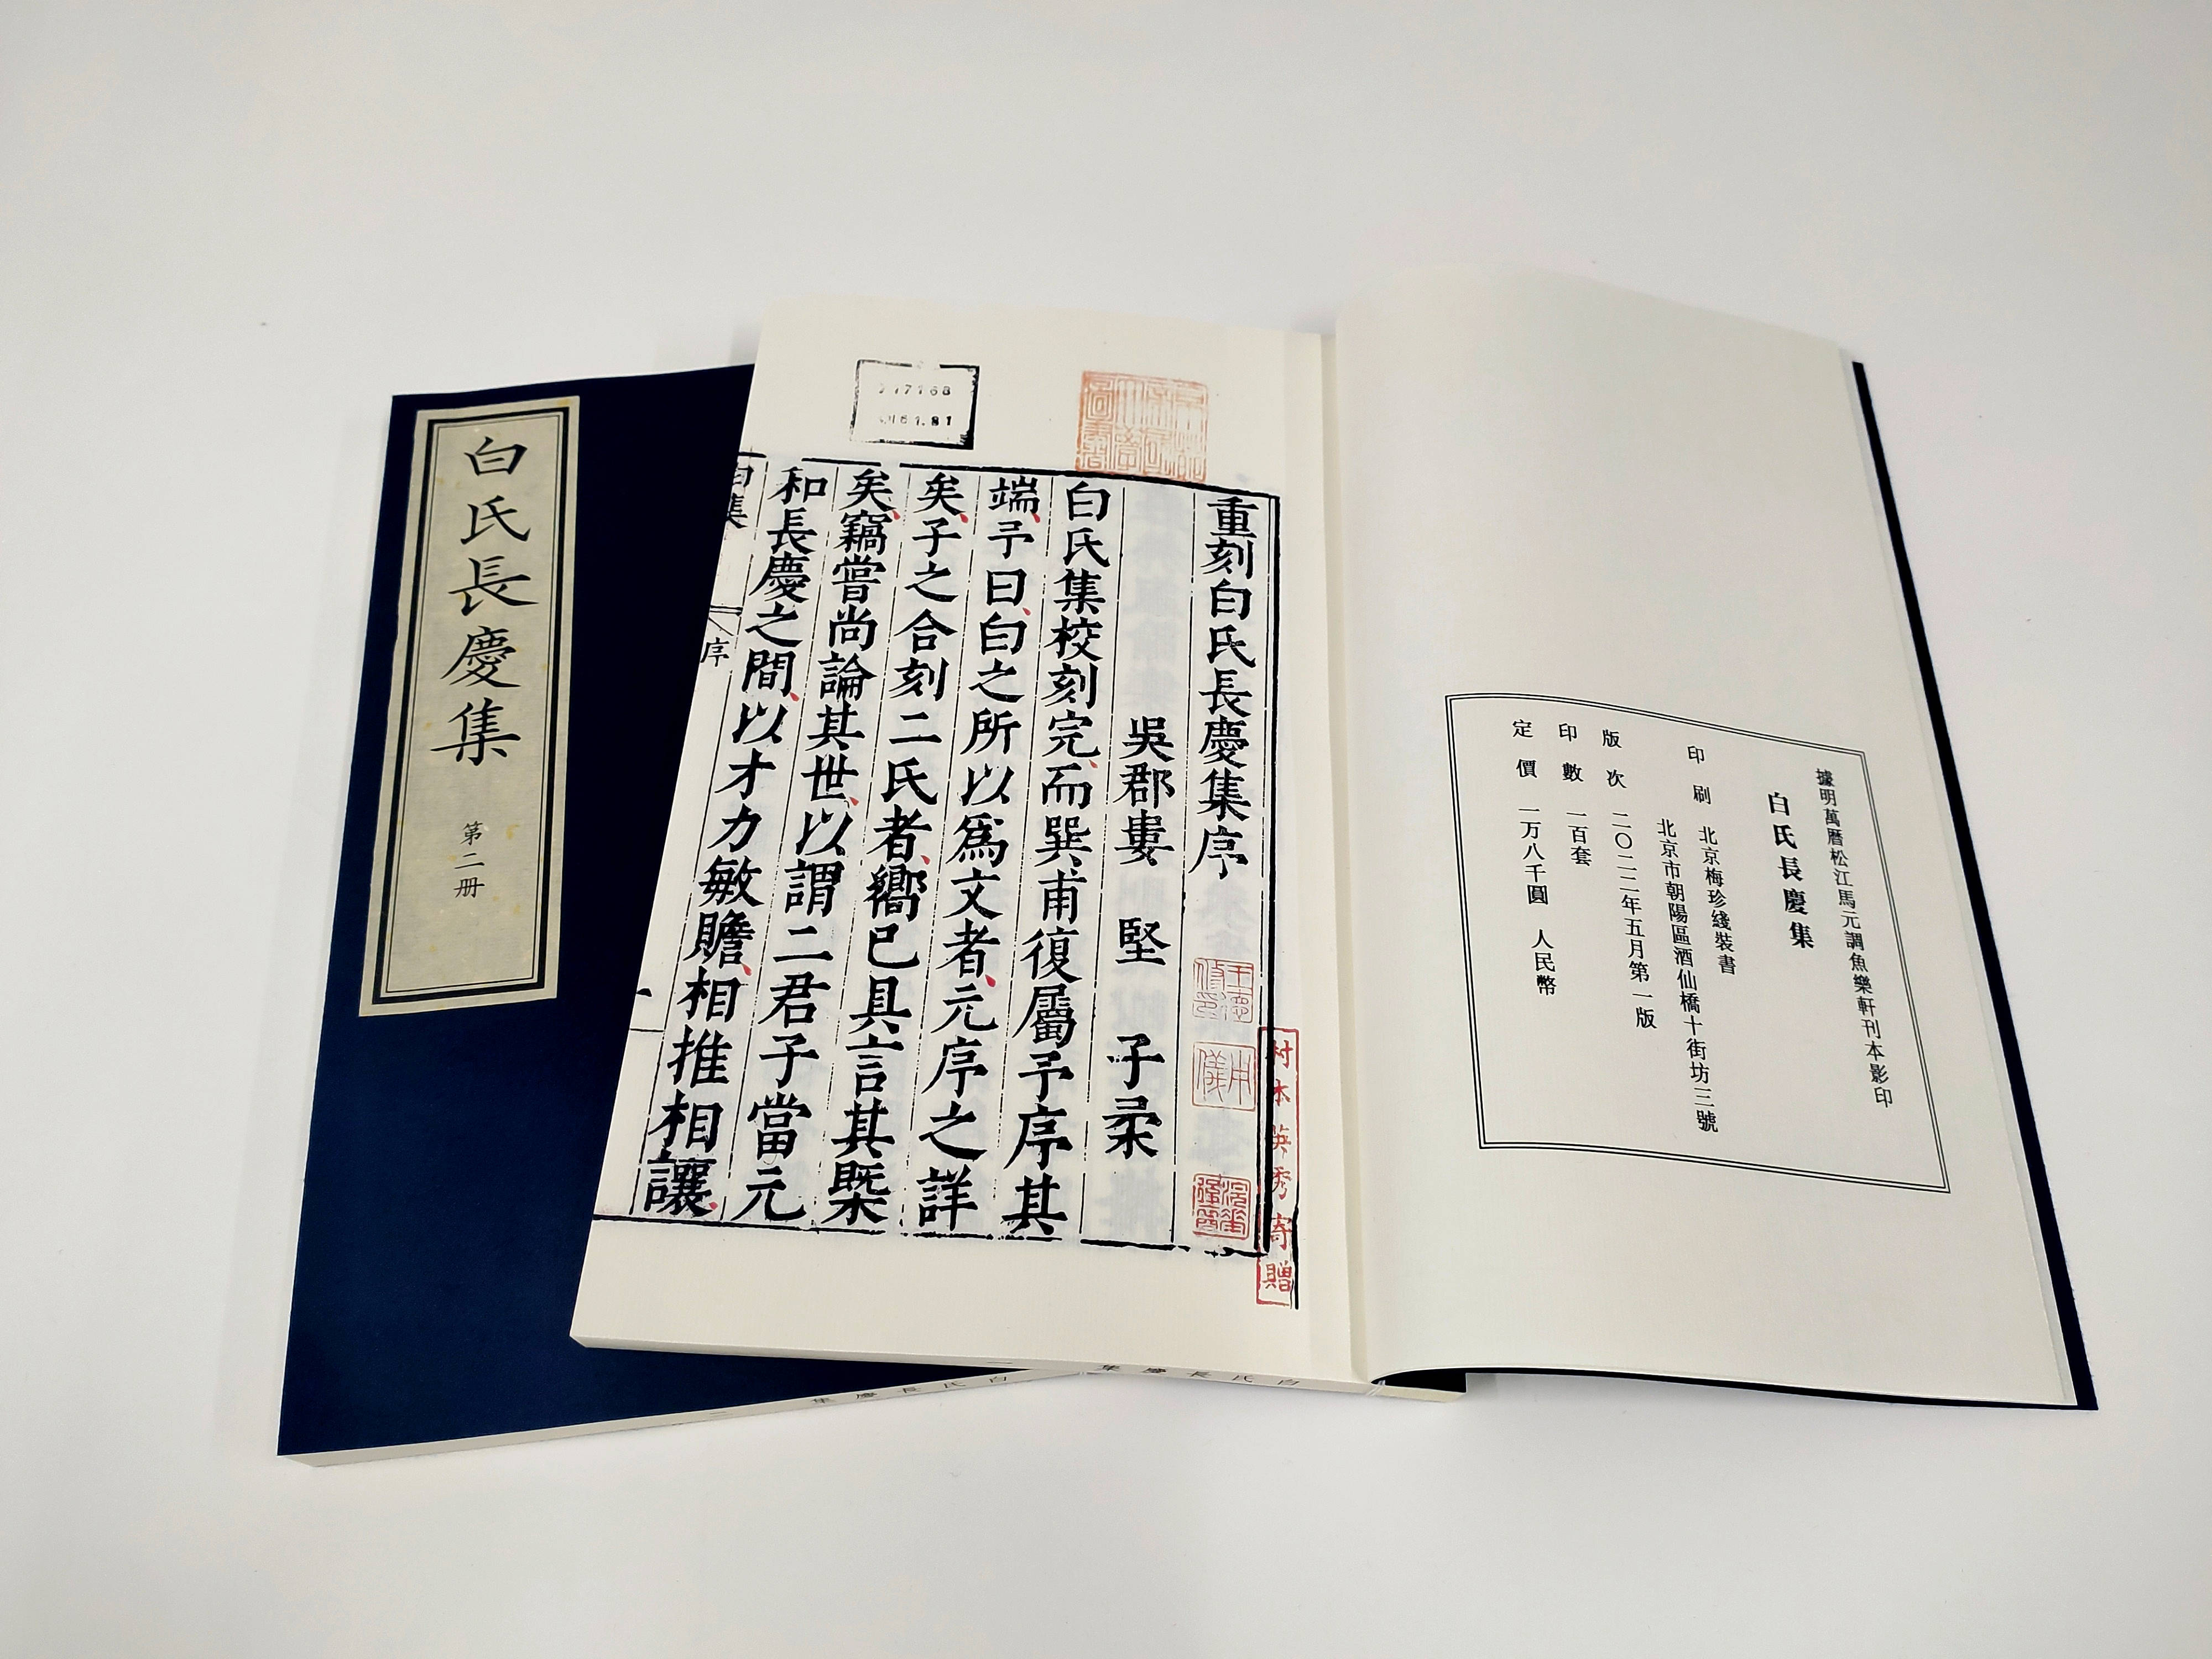 白氏長慶集
第二册
重刻白氏長慶集序
吳郡婁 堅 子柔
白氏集校刻完而巽甫復屬予序其
端予曰白之所以爲文者元序之詳
矣子之合刻二氏者嚮已具言其槩
矣竊嘗尚論其世以謂二君子當元
和長慶之間以才力敏贍相推相讓
白集
序
一
村本英秀寄贈
據明萬曆松江馬元調魚樂軒刊本影印
白氏長慶集
印刷 北京梅珍綫裝書
北京市朝陽區酒仙橋十街坊三號
版次 二〇二二年五月第一版
印數 一百套
定價 一万八千圓 人民幣
白氏長慶集 一
白氏長慶集 二